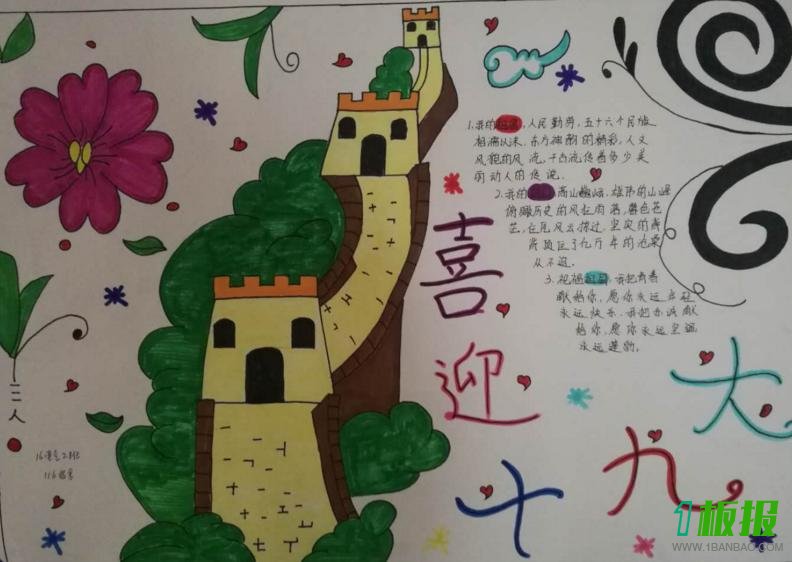 1.我的祖国,人民勤劳,五十六个民族
相濡以沫.东方神韵的精彩,人文
风貌的风流,千古流传着多少美
丽动人的传说.
2.我的祖国,高山巍峨,雄伟的山峰
俯瞰历史的风狂雨落,暮色苍
茫,任凭风云掠过.坚实的脊
背顶住了亿万年的沧桑
从不退.
3.祝福祖国,我把青春
献给你,愿你永远
永远快乐.我把赤诚献
给你,愿你永远坚强
永远蓬勃.
喜迎十九大
三人
1板报
WWW.1BANBAO.COM